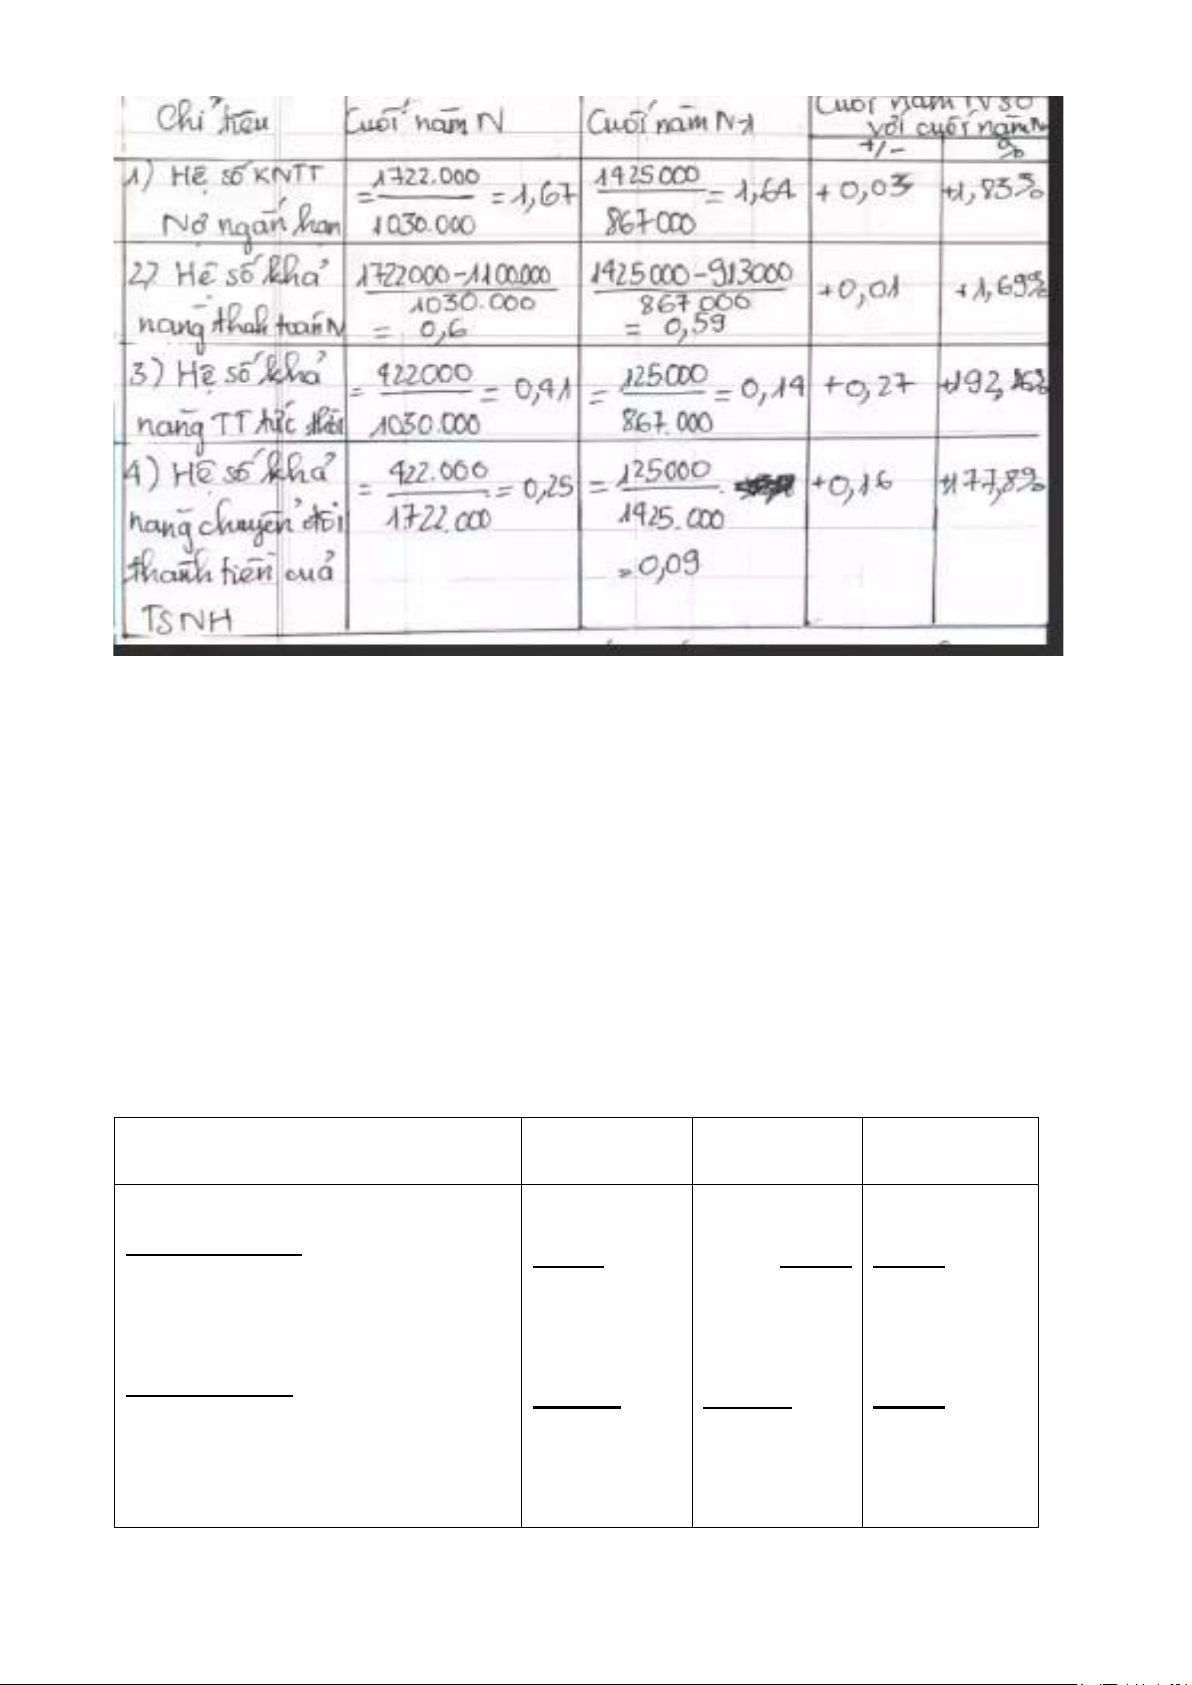 Chỉ tiêu
Cuối năm N
Cuối năm N-1
Cuối năm N so
với cuối năm N
+/-
%
1) Hệ số KNTT
Nợ ngắn hạn
= 1722.000 / 1030.000 = 1,67
1425000 / 867000 = 1,64
+ 0,03
+1,83%
2) Hệ số khả
năng thanh toán N
1722000-1100.000 / 1030.000
= 0,6
1425000-913000 / 867.000
= 0,59
+0,01
+1,69%
3) Hệ số khả
năng TT tức thời
= 422000 / 1030.000 = 0,41
= 125000 / 867.000 = 0,14
+0,27
4) Hệ số khả
năng chuyển đổi
thành tiền của
TSNH
= 422.000 / 1722.000 = 0,25
= 125000 / 1425.000
= 0,09
+0,16
+177,8%